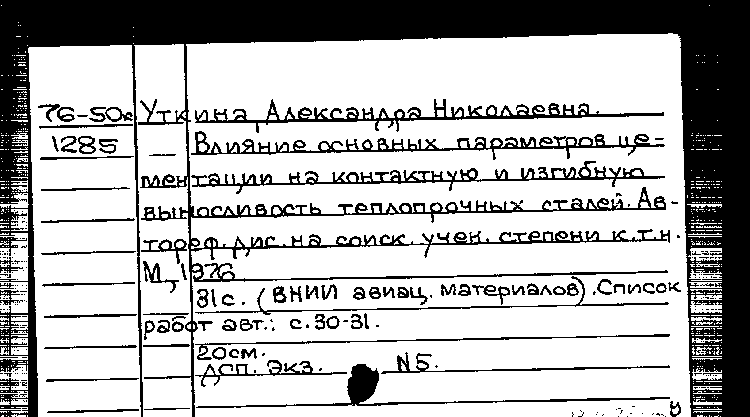 76-50к Уткина, Александра Николаевна.
1285 — Влияние основных параметров це=
ментации на контактную и изгибную
выносливость теплопрочных сталей. Ав-
тореф. дис. на соиск. учен. степени к.т.н.
М., 1976
31 с. (ВНИИ авиац. материалов). Список
работ авт.: с. 30-31.
20 см.
ДСП. Экз. N 5.
У